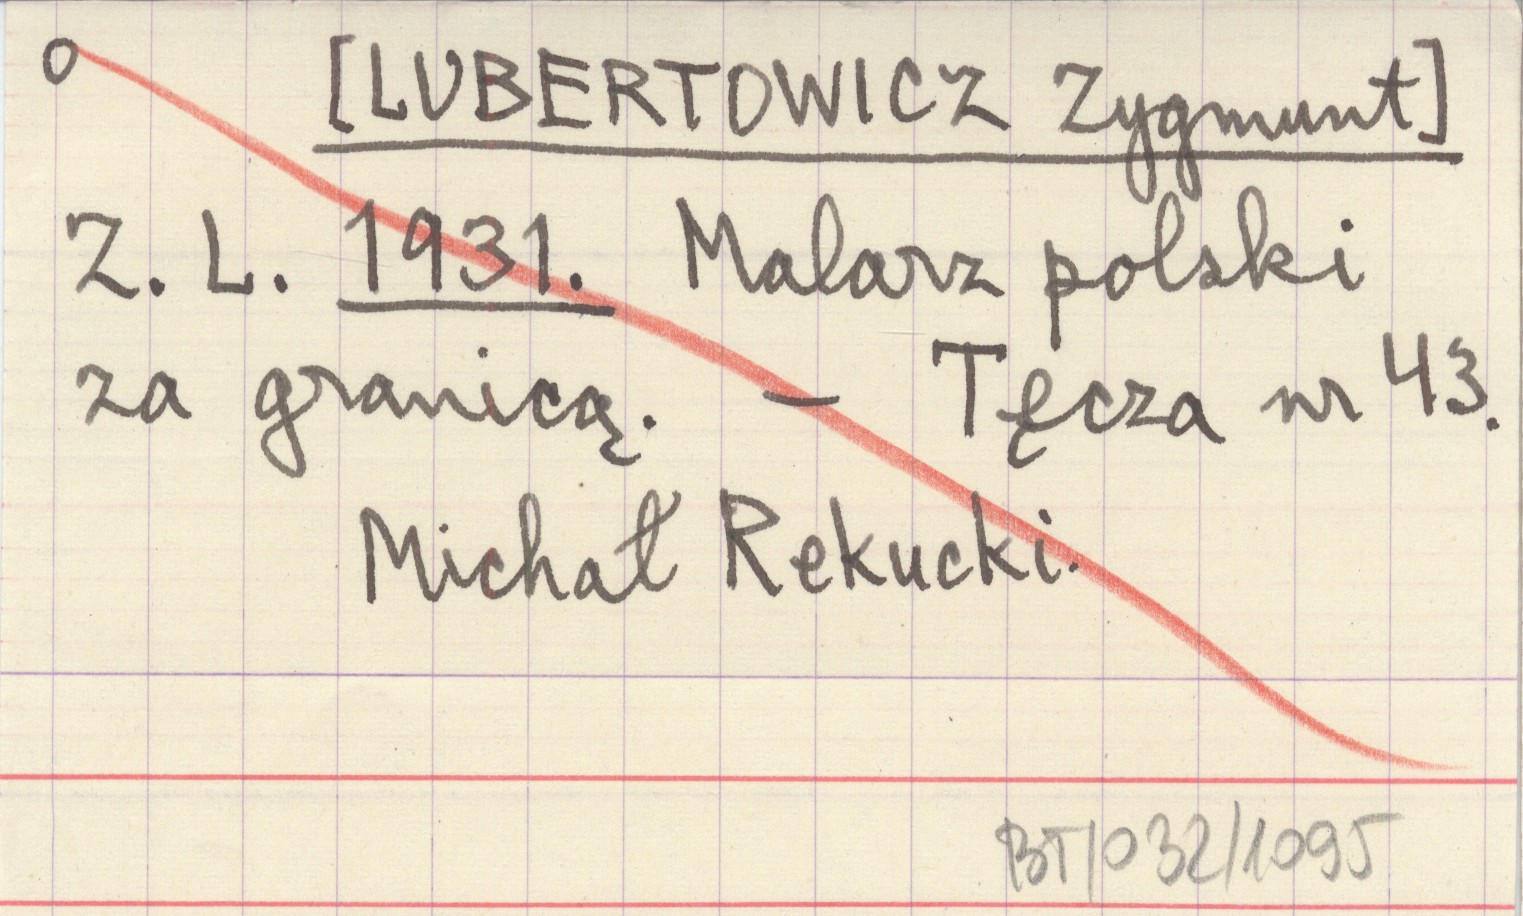 o [LUBERTOWICZ Zygmunt]
Z. L. 1931. Malarz polski
za granicą. — Tęcza nr 43.
Michał Rekucki.
BT/032/1095